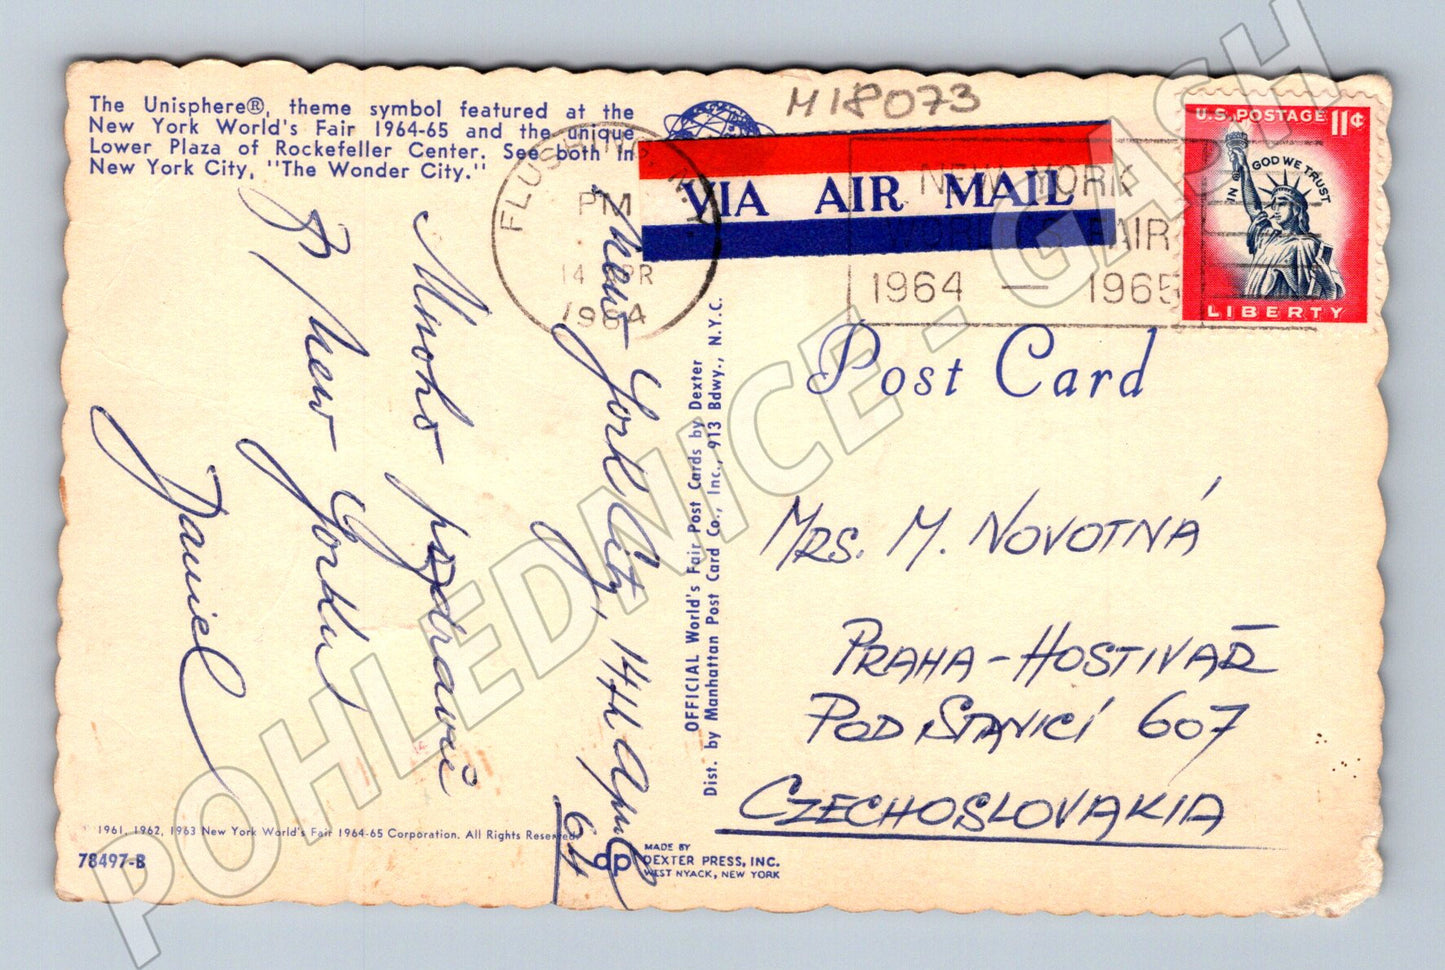 The Unisphere®, theme symbol featured at the
New York World's Fair 1964-65 and the unique
Lower Plaza of Rockefeller Center. See both in
New York City, "The Wonder City."
M18073
FLUSHING, N.Y.
PM
14 APR
1964
VIA AIR MAIL
NEW YORK
WORLD'S FAIR
1964 — 1965
U.S. POSTAGE 11¢
IN GOD WE TRUST
LIBERTY
Post Card
New York City, 14th April
64
Mnoho pozdravů
z New Yorku
Daniel
OFFICIAL World's Fair Post Cards by Dexter
Dist. by Manhattan Post Card Co., Inc., 913 Bdwy., N.Y.C.
MRS. M. NOVOTNÁ
PRAHA - HOSTIVAŘ
POD STANICÍ 607
CZECHOSLOVAKIA
1961, 1962, 1963 New York World's Fair 1964-65 Corporation. All Rights Reserved
78497-B
dp
MADE BY
DEXTER PRESS, INC.
WEST NYACK, NEW YORK
POHLEDNICE - GASH